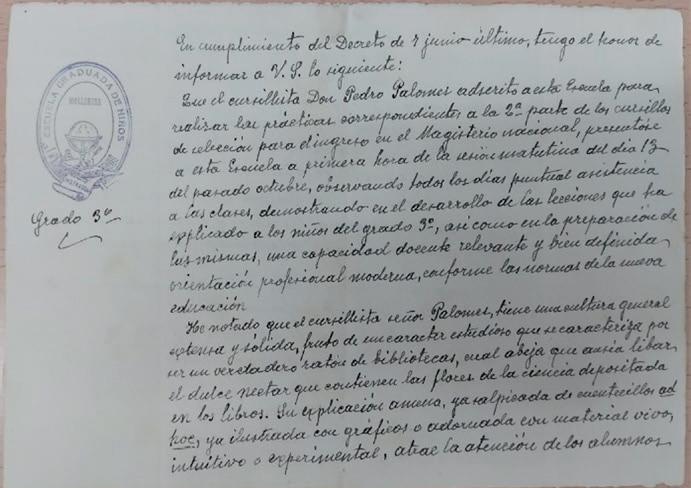 ESCUELA GRADUADA DE NIÑOS
Grado 3º
En cumplimiento del Decreto de 7 junio último, tengo el honor de
informar a V. S. lo siguiente:
Que el cursillista Don Pedro Palomes adscrito a esta Escuela para
realizar las prácticas correspondientes a la 2ª parte de los cursillos
de selección para el ingreso en el Magisterio nacional, presentóse
a esta Escuela a primera hora de la sesión matutina del día 13
del pasado octubre, observando todos los días puntual asistencia
a las clases, demostrando en el desarrollo de las lecciones que ha
explicado a los niños del grado 3º, así como en la preparación de
las mismas, una capacidad docente relevante y bien definida
orientación profesional moderna, conforme las normas de la nueva
educación
He notado que el cursillista señor Palomes, tiene una cultura general
extensa y sólida, fruto de un caracter estudioso que se caracteriza por
ser un verdadero ratón de bibliotecas, cual abeja que ansía libar
el dulce nectar que contienen las flores de la ciencia depositada
en los libros. Su explicación amena, ya salpicada de cuentecillos ad
hoc, ya ilustrada con gráficos o adornada con material vivo,
intuitivo o experimental, atrae la atención de los alumnos